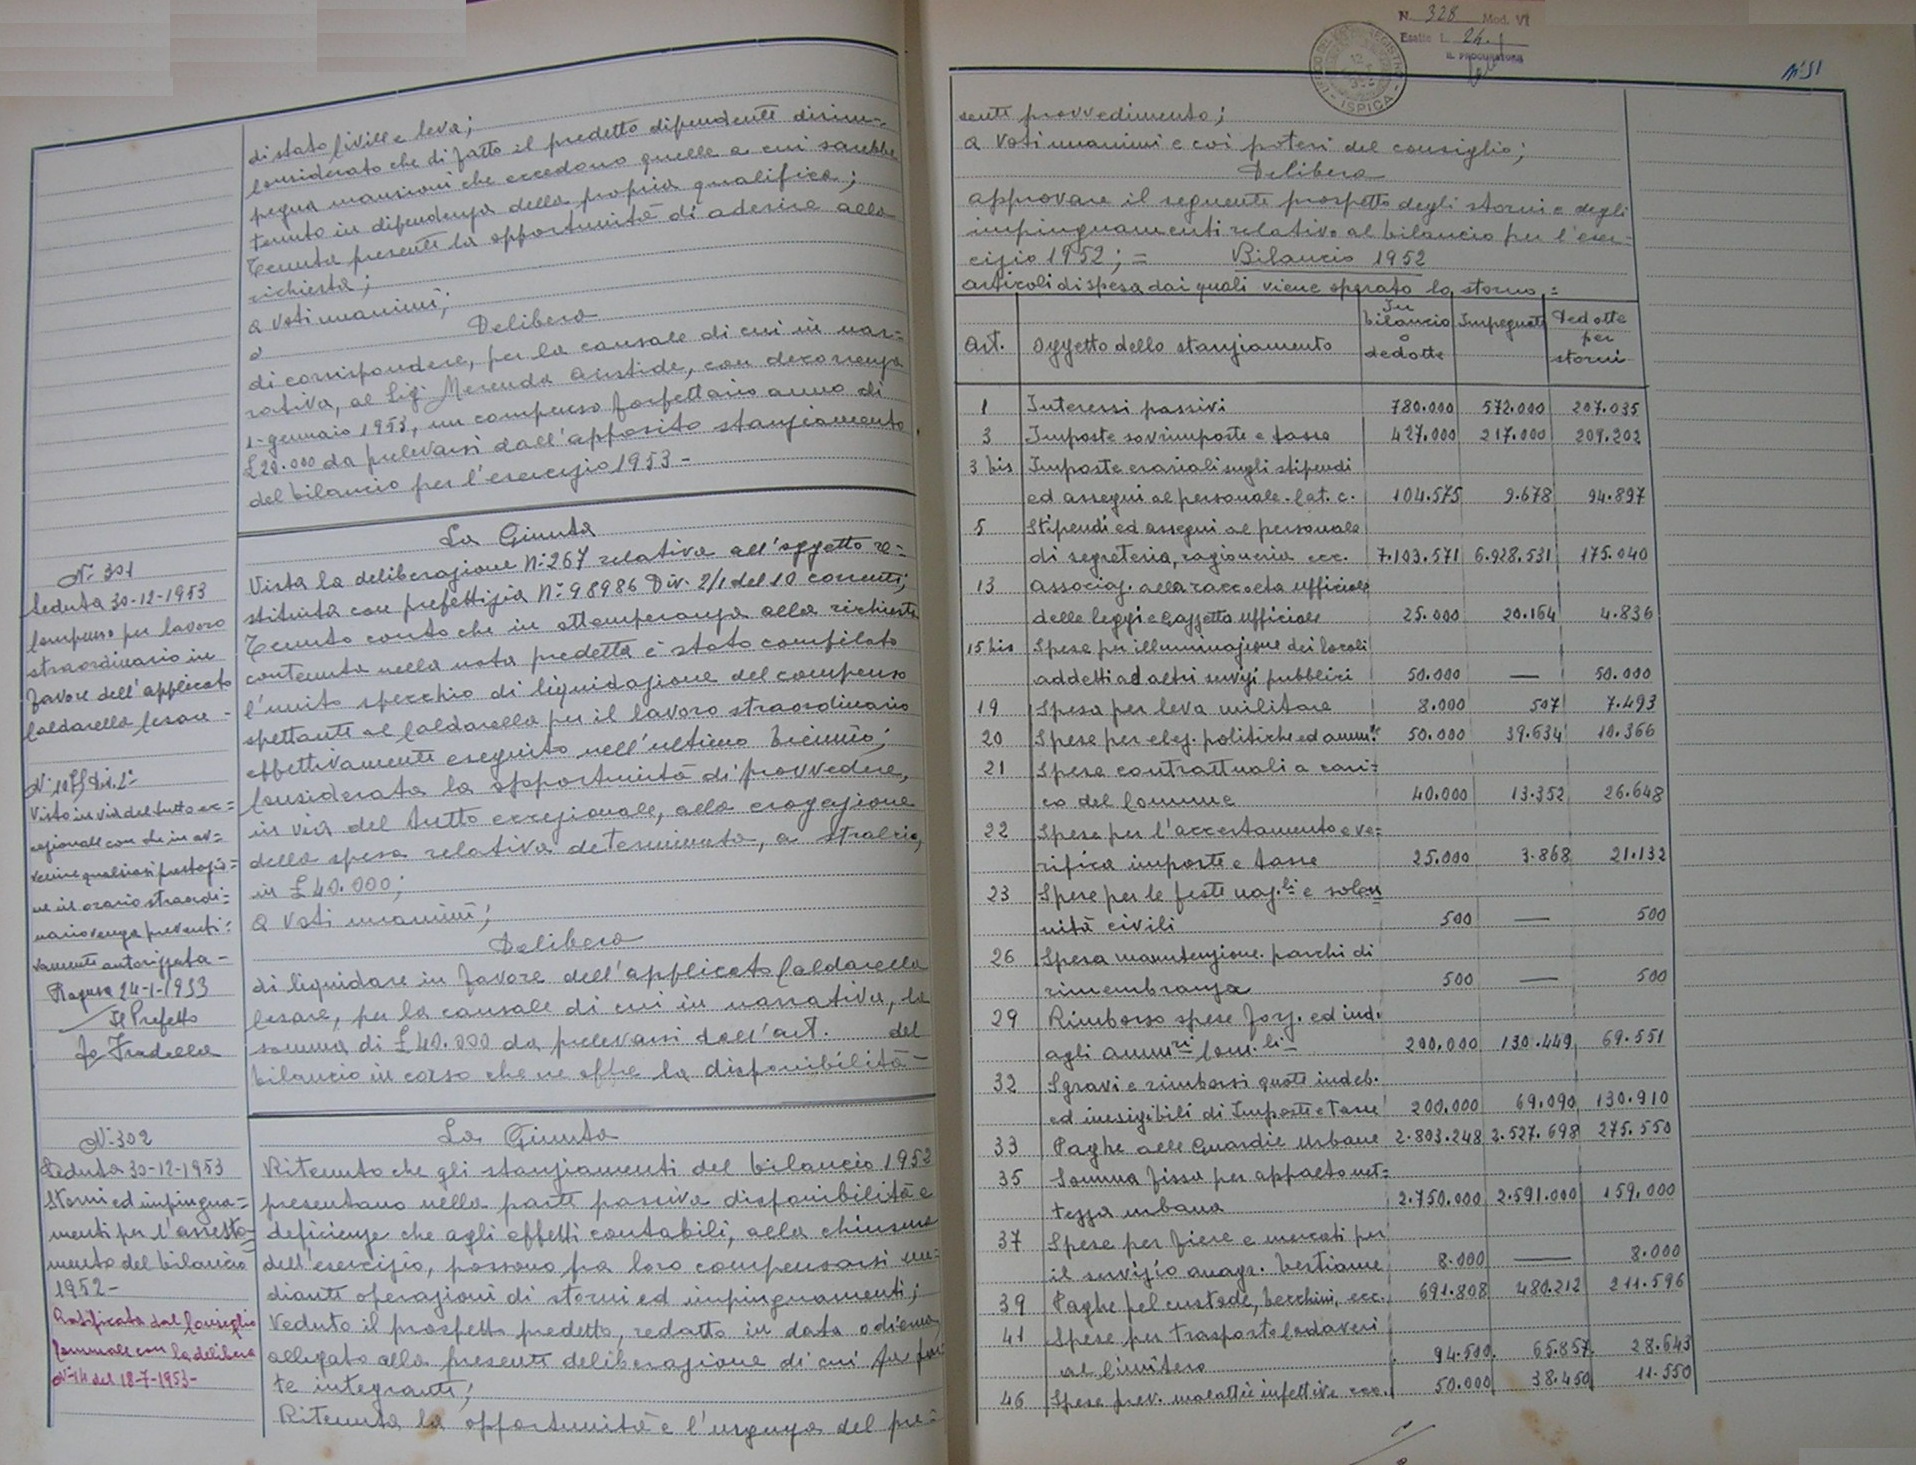 di stato Civile e leva;
Considerato che di fatto il predetto dipendente disim-
pegna mansioni che eccedono quelle a cui sarebbe
tenuto in dipendenza della propria qualifica;
Tenuta presente la opportunità di aderire alla
richiesta;
a voti unanimi;
Delibera
di corrispondere, per la causale di cui in nar-
rativa, al Sig. Merenda Aristide, con decorrenza
1- gennaio 1953, un compenso forfettario annuo di
£ 20.000 da prelevarsi dall'apposito stanziamento
del bilancio per l'esercizio 1953 -
N. 301
Seduta 30-12-1953
Compenso per lavoro
straordinario in
favore dell'applicato
Caldarella Cesare -
Visto in via del tutto ec=
cezionale con che in av=
venire qualsiasi prestazio=
ne in orario straordi=
nario venga preventi=
vamente autorizzata -
Ragusa 24-1-1953
Il Prefetto
La Giunta
Vista la deliberazione N. 267 relativa all'oggetto re=
stituita con prefettizia N. 98986 Div. 2/1 del 10 corrente;
Tenuto conto che in ottemperanza alla richiesta
contenuta nella nota predetta è stato compilato
l'unito specchio di liquidazione del compenso
spettante al Caldarella per il lavoro straordinario
effettivamente eseguito nell'ultimo biennio;
Considerata la opportunità di provvedere,
in via del tutto eccezionale, alla erogazione
della spesa relativa determinata, a stralcio,
in £ 40.000;
a voti unanimi;
Delibera
di liquidare in favore dell'applicato Caldarella
Cesare, per la causale di cui in narrativa, la
somma di £ 40.000 da prelevarsi dall'art. del
bilancio in corso che ne offre la disponibilità -
N. 302
Seduta 30-12-1953
Storni ed impingua=
menti per l'assesta=
mento del bilancio
1952 -
Ratificata dal Consiglio
Comunale con la delibera
N. 14 del 18-7-1953 -
La Giunta
Ritenuto che gli stanziamenti del bilancio 1952
presentano nella parte passiva disponibilità e
deficienze che agli effetti contabili, alla chiusura
dell'esercizio, possono fra loro compensarsi me=
diante operazioni di storni ed impinguamenti;
Veduto il prospetto predetto, redatto in data odierna,
allegato alla presente deliberazione di cui fa par
te integrante;
Ritenuta la opportunità e l'urgenza del pre=
N. 328 Mod. VI
Esatte L. 24.
IL PROCURATORE
ISPICA
N. 51
sente provvedimento;
a voti unanimi e coi poteri del consiglio;
Delibera
approvare il seguente prospetto degli storni e degli
impinguamenti relativo al bilancio per l'eser-
cizio 1952; = Bilancio 1952
Articoli di spesa dai quali viene operato lo storno =
Art. Oggetto dello stanziamento In bilancio o dedotte Impegnate Dedotte per storni
1 Interessi passivi 780.000 572.000 207.035
3 Imposte sovrimposte e tasse 427.000 217.000 209.202
3 bis Imposte erariali sugli stipendi
ed assegni al personale - Cat. C. 104.575 9.678 94.897
5 Stipendi ed assegni al personale
di segreteria, ragioneria ecc. 7.103.571 6.928.531 175.040
13 Associaz. alla raccolta ufficiale
delle leggi e Gazzetta ufficiale 25.000 20.164 4.836
15 bis Spese per illuminazione dei locali
addetti ad altri servizi pubblici 50.000 — 50.000
19 Spesa per leva militare 8.000 507 7.493
20 Spese per elez. politiche ed amm.ve 50.000 39.634 10.366
21 Spese contrattuali a cari=
co del Comune 40.000 13.352 26.648
22 Spese per l'accertamento e ve=
rifica imposte e tasse 25.000 3.868 21.132
23 Spese per le feste naz.li e solen
nità civili 500 — 500
26 Spesa manutenzione parchi di
rimembranza 500 — 500
29 Rimborso spese forz. ed ind.
agli ammri com.li 200.000 130.449 69.551
32 Sgravi e rimborsi quote indeb.
ed inesigibili di Imposte e Tasse 200.000 69.090 130.910
33 Paghe alle Guardie Urbane 2.803.248 2.527.698 275.550
35 Somma fissa per appalto net=
tezza urbana 2.750.000 2.591.000 159.000
37 Spese per fiere e mercati per
il servizio anagr. bestiame 8.000 — 8.000
39 Paghe pel custode, becchini, ecc. 691.808 480.212 211.596
41 Spese per trasporto Cadaveri
al Cimitero 94.500 65.857 28.643
46 Spese prev. malattie infettive ecc. 50.000 38.450 11.550